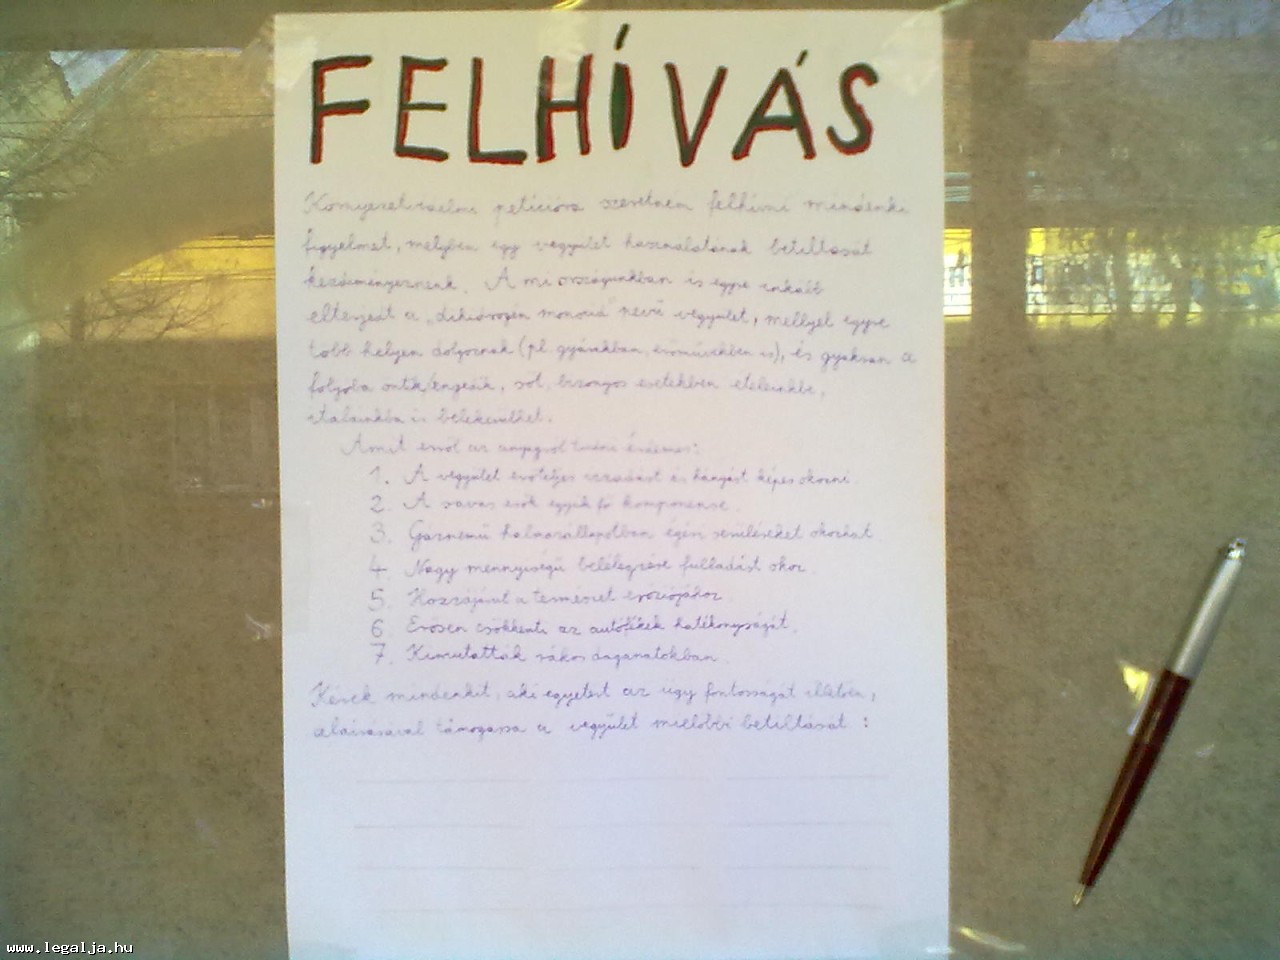 FELHÍVÁS
Környezetvédelmi petícióra szeretném felhívni mindenki
figyelmét, melyben egy vegyület használatának betiltását
kezdeményeznénk. A mi országunkban is egyre inkább
elterjedt a „dihidrogén monoxid" nevű vegyület, mellyel egyre
több helyen dolgoznak (pl. gyárakban, erőművekben is), és gyakran a
folyóba öntik/engedik, sőt, bizonyos esetekben ételeinkbe,
italainkba is belekerülhet.
Amit erről az anyagról tudni érdemes:
1. A vegyület erőteljes izzadást és hányást képes okozni.
2. A savas esők egyik fő komponense.
3. Gáznemű halmazállapotban égési sérüléseket okozhat.
4. Nagy mennyiségű belélegzése fulladást okoz.
5. Hozzájárul a természet eróziójához.
6. Erősen csökkenti az autófékek hatékonyságát.
7. Kimutatták rákos daganatokban.
Kérek mindenkit, aki egyetért az ügy fontosságát illetően,
aláírásával támogassa a vegyület mielőbbi betiltását:
www.legalja.hu